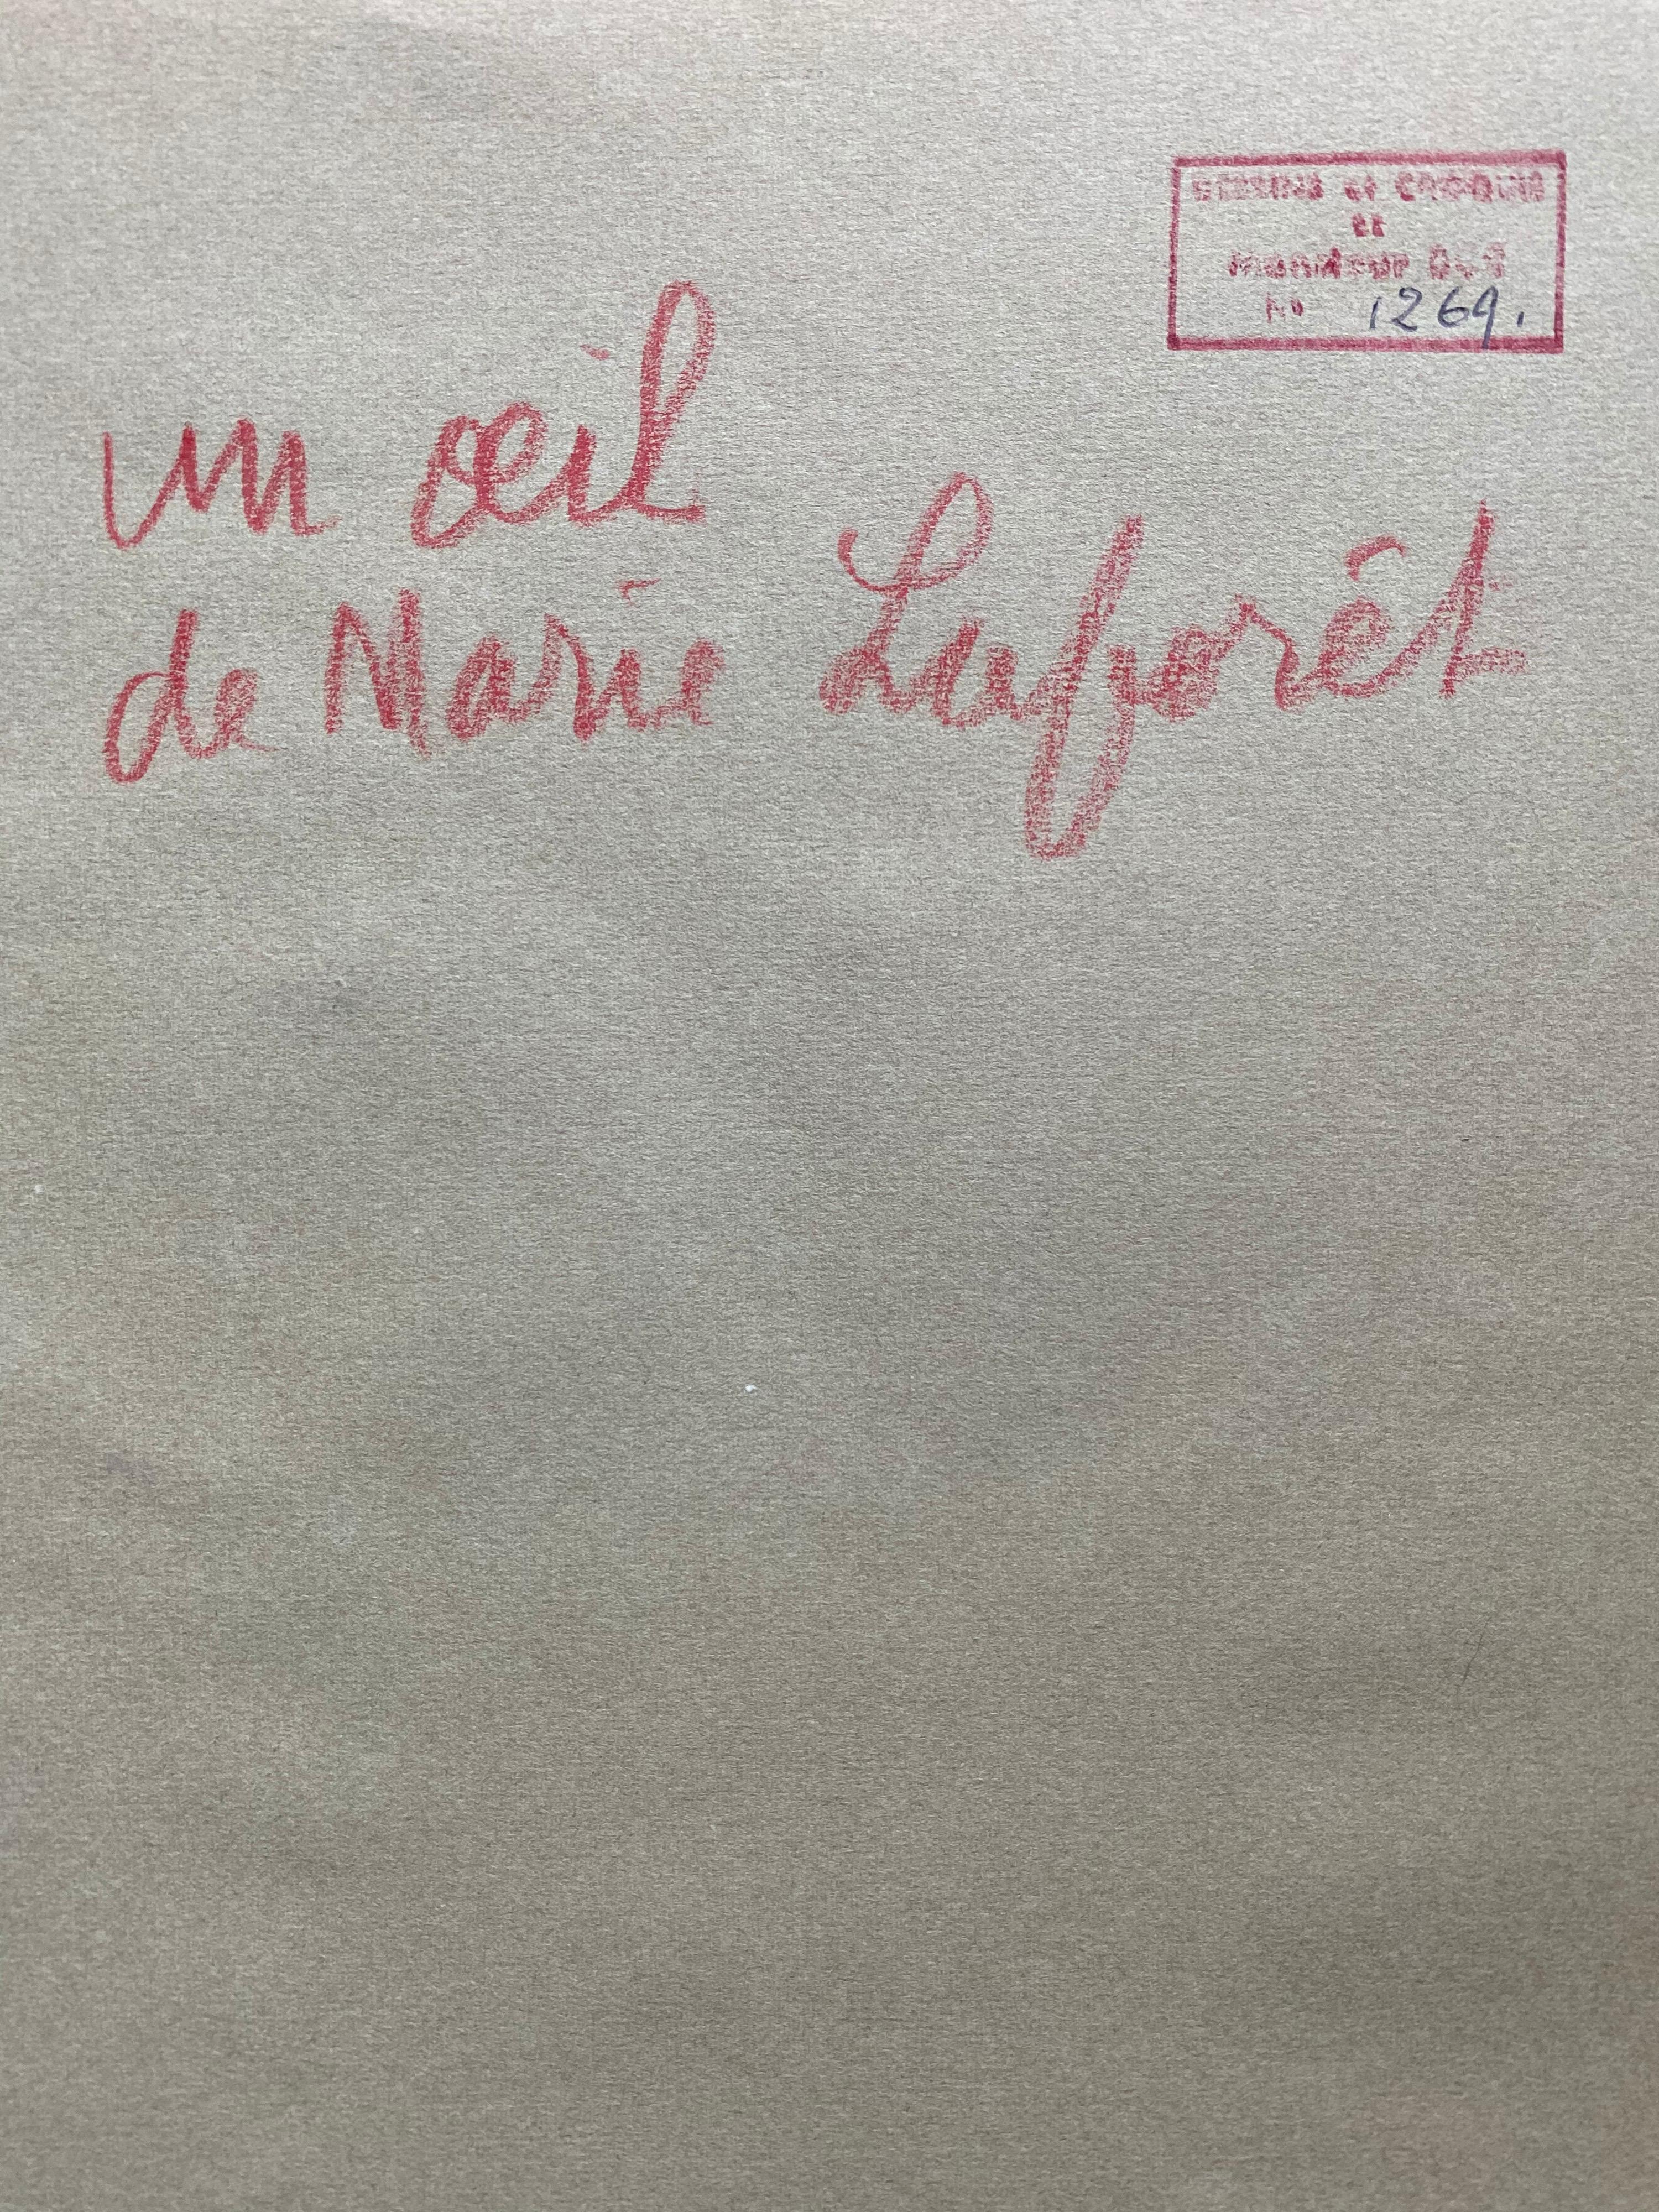 et
No 1269.
un œil
de Marie Laforêt